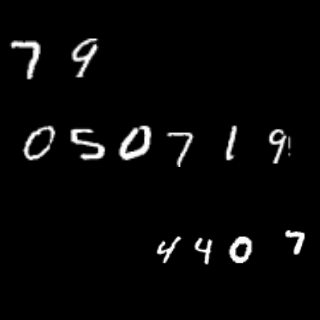 7 9
0 5 0 7 1 9
4 4 0 7